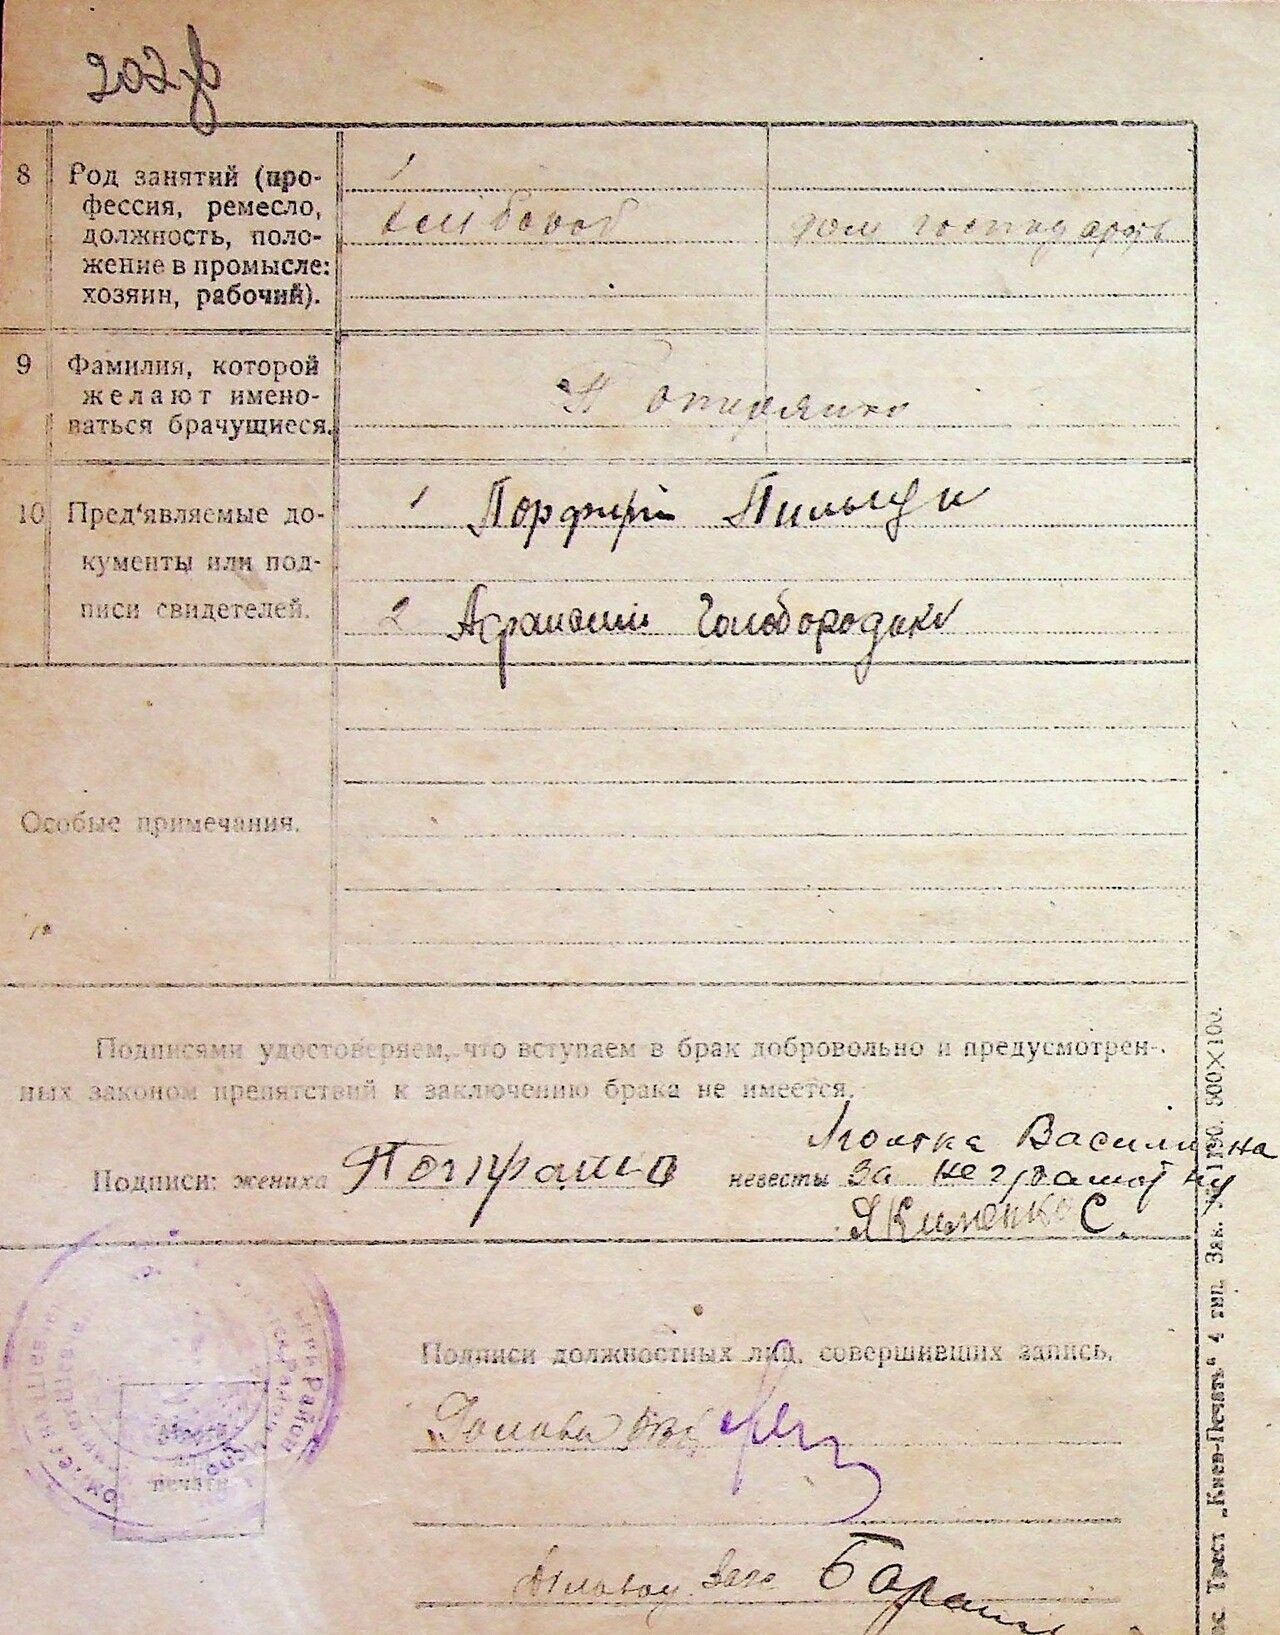 8 Род занятий (про-
фессия, ремесло,
должность, поло-
жение в промысле:
хозяин, рабочий).
хлібороб
дом господарь
9 Фамилия, которой
желают имено-
ваться брачущиеся.
10 Пред'являемые до-
кументы или под-
писи свидетелей.
1 Порфирій
2 Голобородько
Особые примечания.
Подписями удостоверяем, что вступаем в брак добровольно и предусмотрен-
ных законом препятствий к заключению брака не имеется.
Василина
Подписи: жениха невесты за неграмотну
Якименко С.
Подписи должностных лиц, совершивших запись.
Голова
Место
для
печати
Трест „Киев-Печать“ 4 тип. Зак.